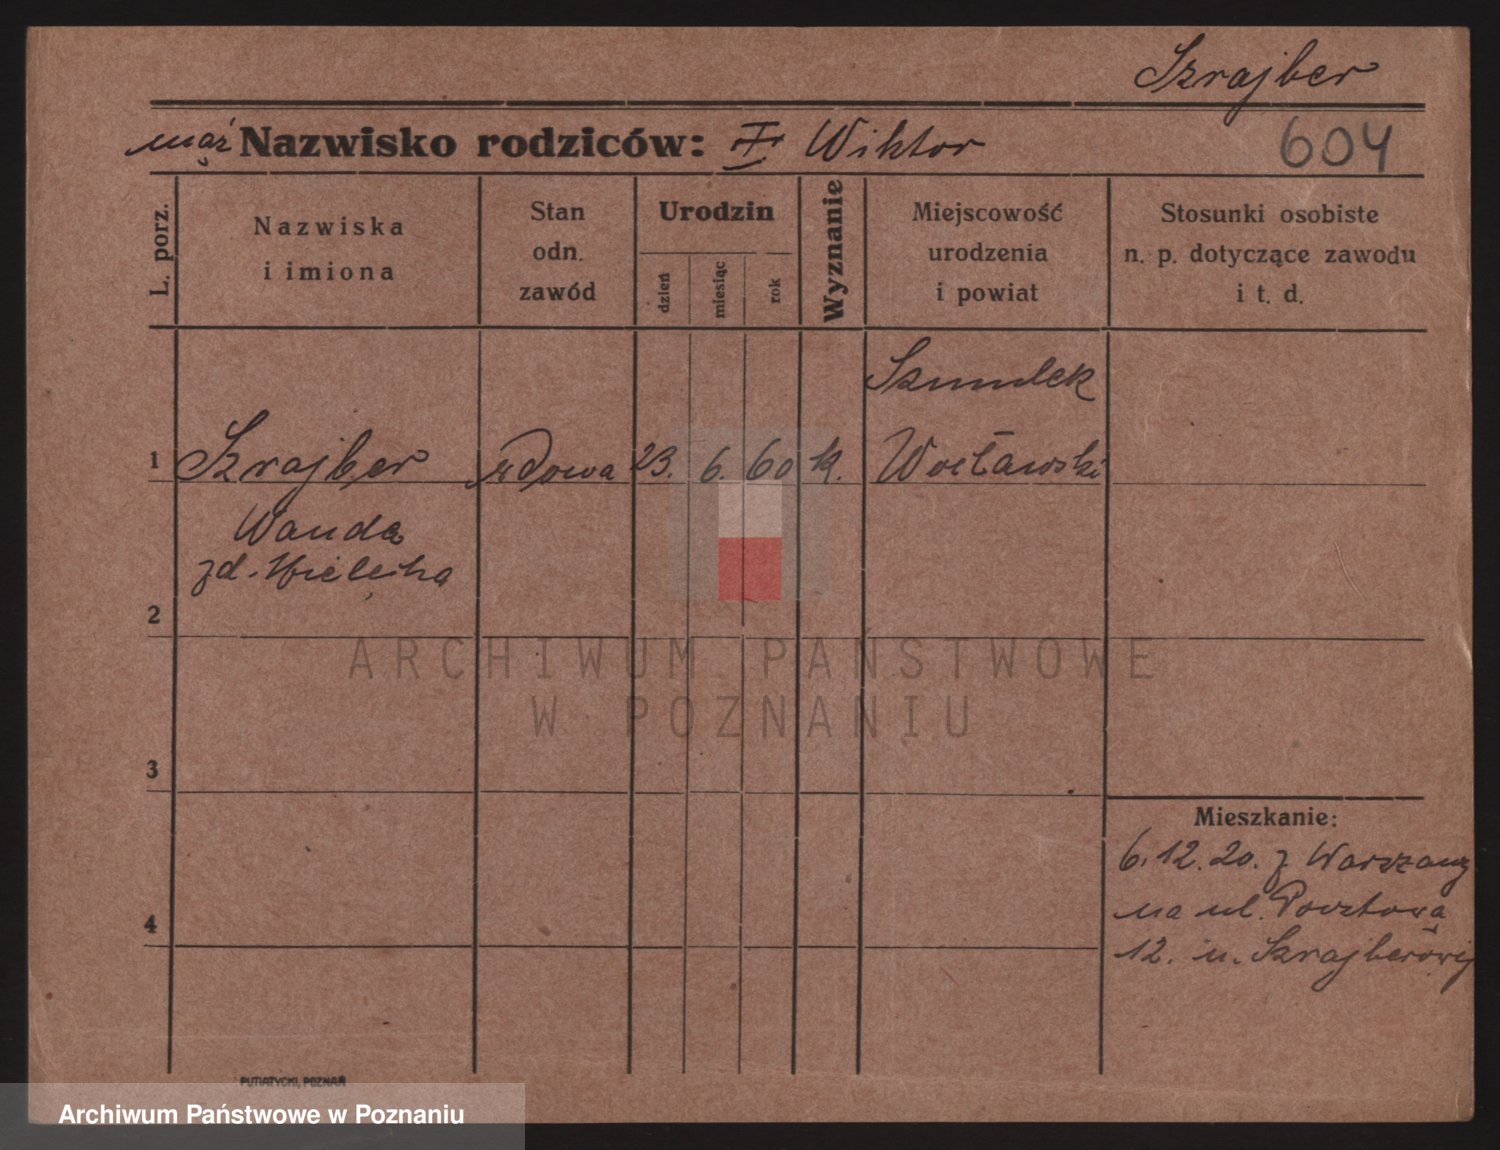 Szrajber
mąż Nazwisko rodziców: Wiktor
604
L. porz.
Nazwiska
i imiona
Stan
odn.
zawód
Urodzin
dzień
miesiąc
rok
Wyznanie
Miejscowość
urodzenia
i powiat
Stosunki osobiste
n. p. dotyczące zawodu
i t. d.
Szmulek
1 Szrajber wdowa 23. 6. 60 k. Wocławski
Wanda
zd.
2
3
4
Mieszkanie:
6.12.20. z Warszawy
na ul. Pocztowa
12. u. Szrajberówij
ARCHIWUM PAŃSTWOWE
W POZNANIU
PUTIATYCKI, POZNAŃ
Archiwum Państwowe w Poznaniu